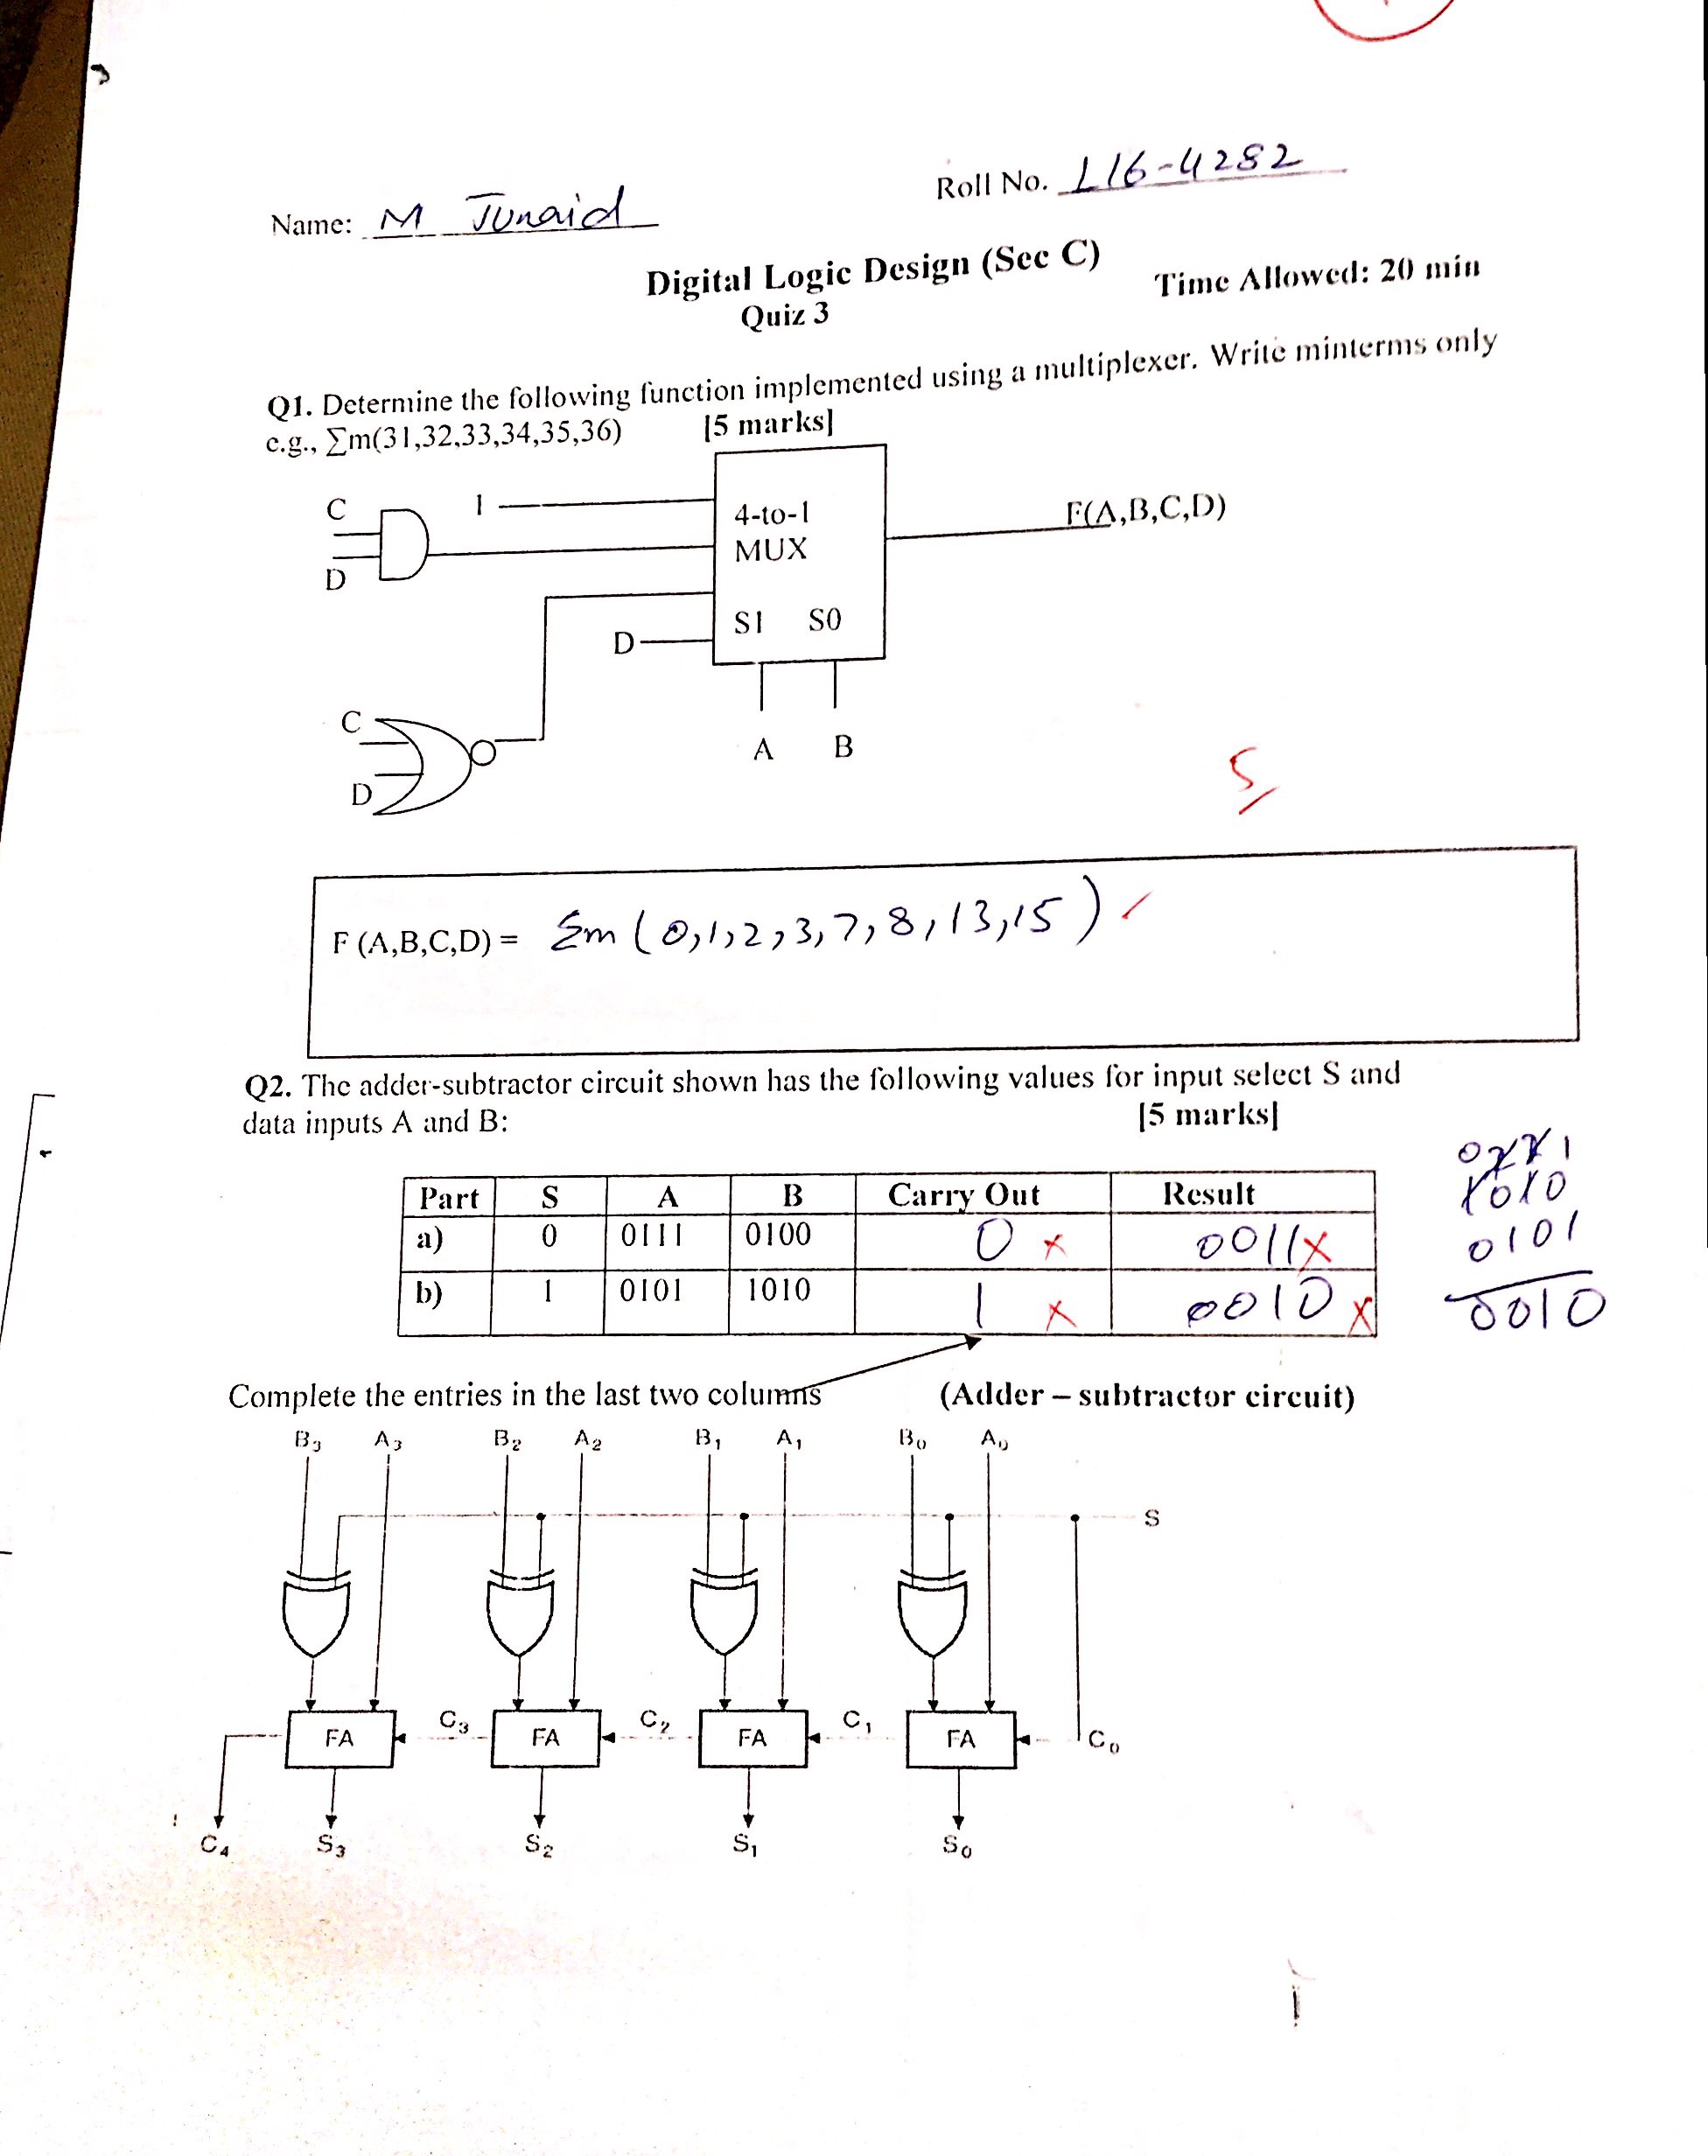 Roll No. L16-4282
Name: M Junaid
Digital Logic Design (Sec C)
Time Allowed: 20 min
Quiz 3
Q1. Determine the following function implemented using a multiplexer. Write minterms only
e.g., ∑m(31,32,33,34,35,36) [5 marks]
C
D
1
4-to-1
MUX
S1 S0
F(A,B,C,D)
D
C
D
A B
5
F (A,B,C,D) = Σm (0,1,2,3,7,8,13,15)
Q2. The adder-subtractor circuit shown has the following values for input select S and
data inputs A and B: [5 marks]
Part S A B Carry Out Result
a) 0 0111 0100 0 x 0011 x
b) 1 0101 1010 1 x 0010 x
1010
0101
0010
Complete the entries in the last two columns (Adder – subtractor circuit)
B3 A3 B2 A2 B1 A1 B0 A0
S
FA C3 FA C2 FA C1 FA C0
C4 S3 S2 S1 S0